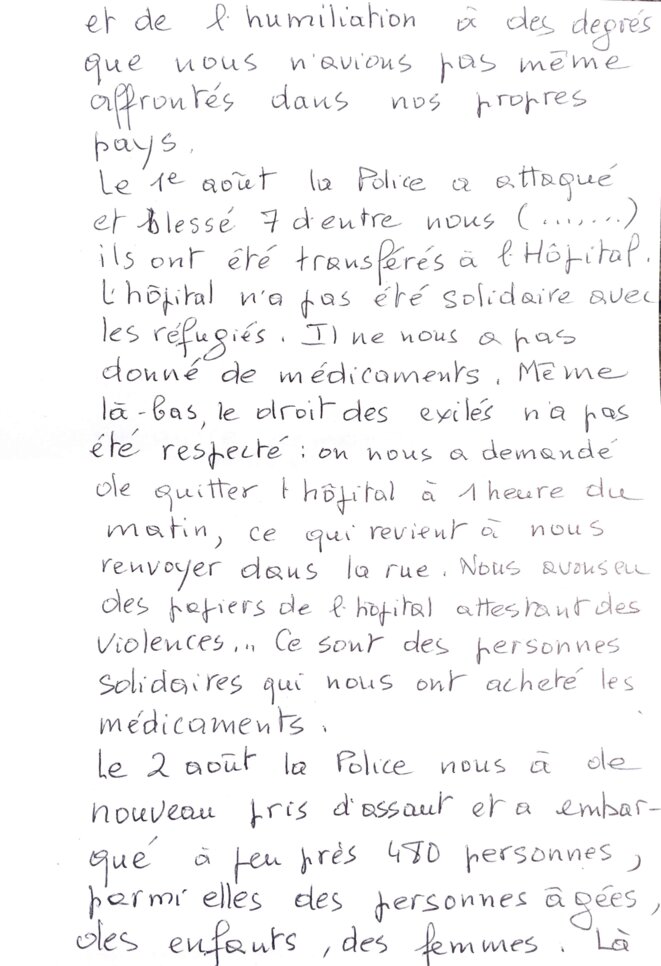 et de l'humiliation à des degrés
que nous n'avions pas même
affrontés dans nos propres
pays.
Le 1e août la Police a attaqué
et blessé 7 d'entre nous (...,...)
ils ont été transférés à l'Hôpital.
L'hôpital n'a pas été solidaire avec
les réfugiés. Il ne nous a pas
donné de médicaments. Même
là-bas, le droit des exilés n'a pas
été respecté : on nous a demandé
de quitter l'hôpital à 1 heure du
matin, ce qui revient à nous
renvoyer dans la rue. Nous avons eu
des papiers de l'hôpital attestant des
violences... Ce sont des personnes
solidaires qui nous ont acheté les
médicaments.
Le 2 août la Police nous à de
nouveau pris d'assaut et a embar-
qué à peu près 480 personnes,
parmi elles des personnes âgées,
des enfants, des femmes. Là